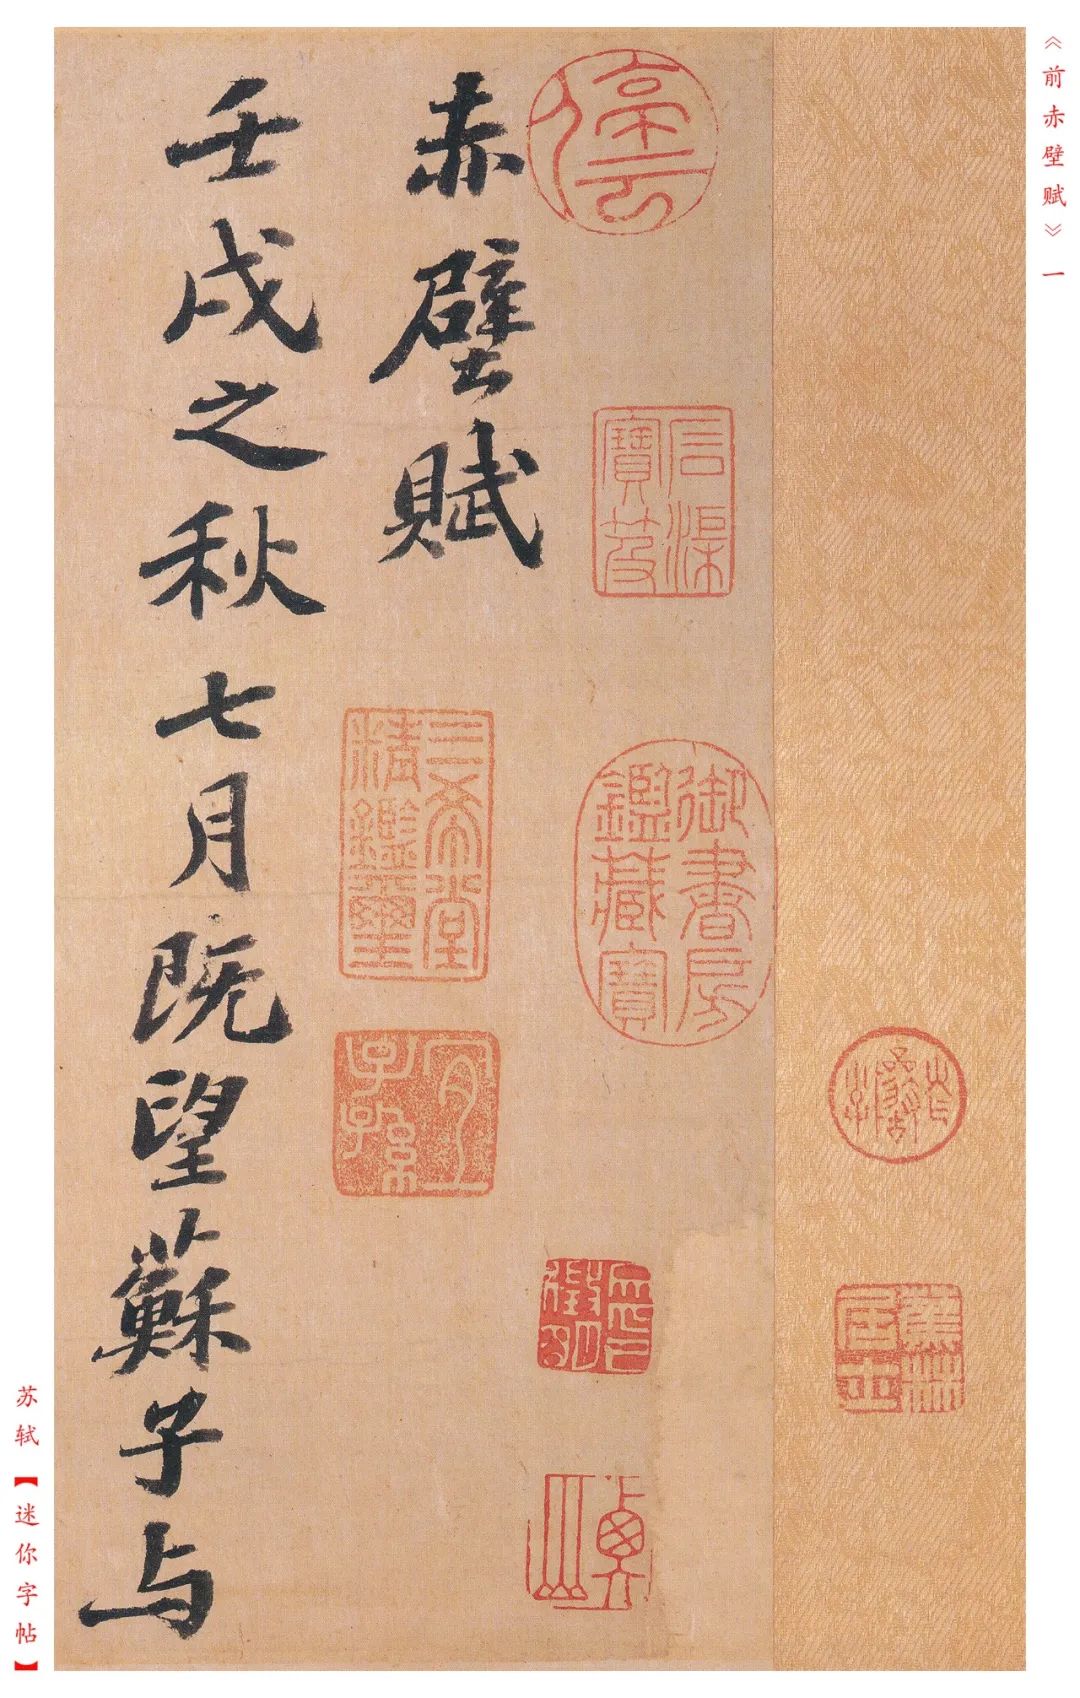 《前赤壁赋》一
蕉林居士
石渠寶笈
御書房鑑藏寶
赤壁賦
三希堂精鑑璽
宜子孫
壬戌之秋七月既望蘇子与
苏轼【迷你字帖】